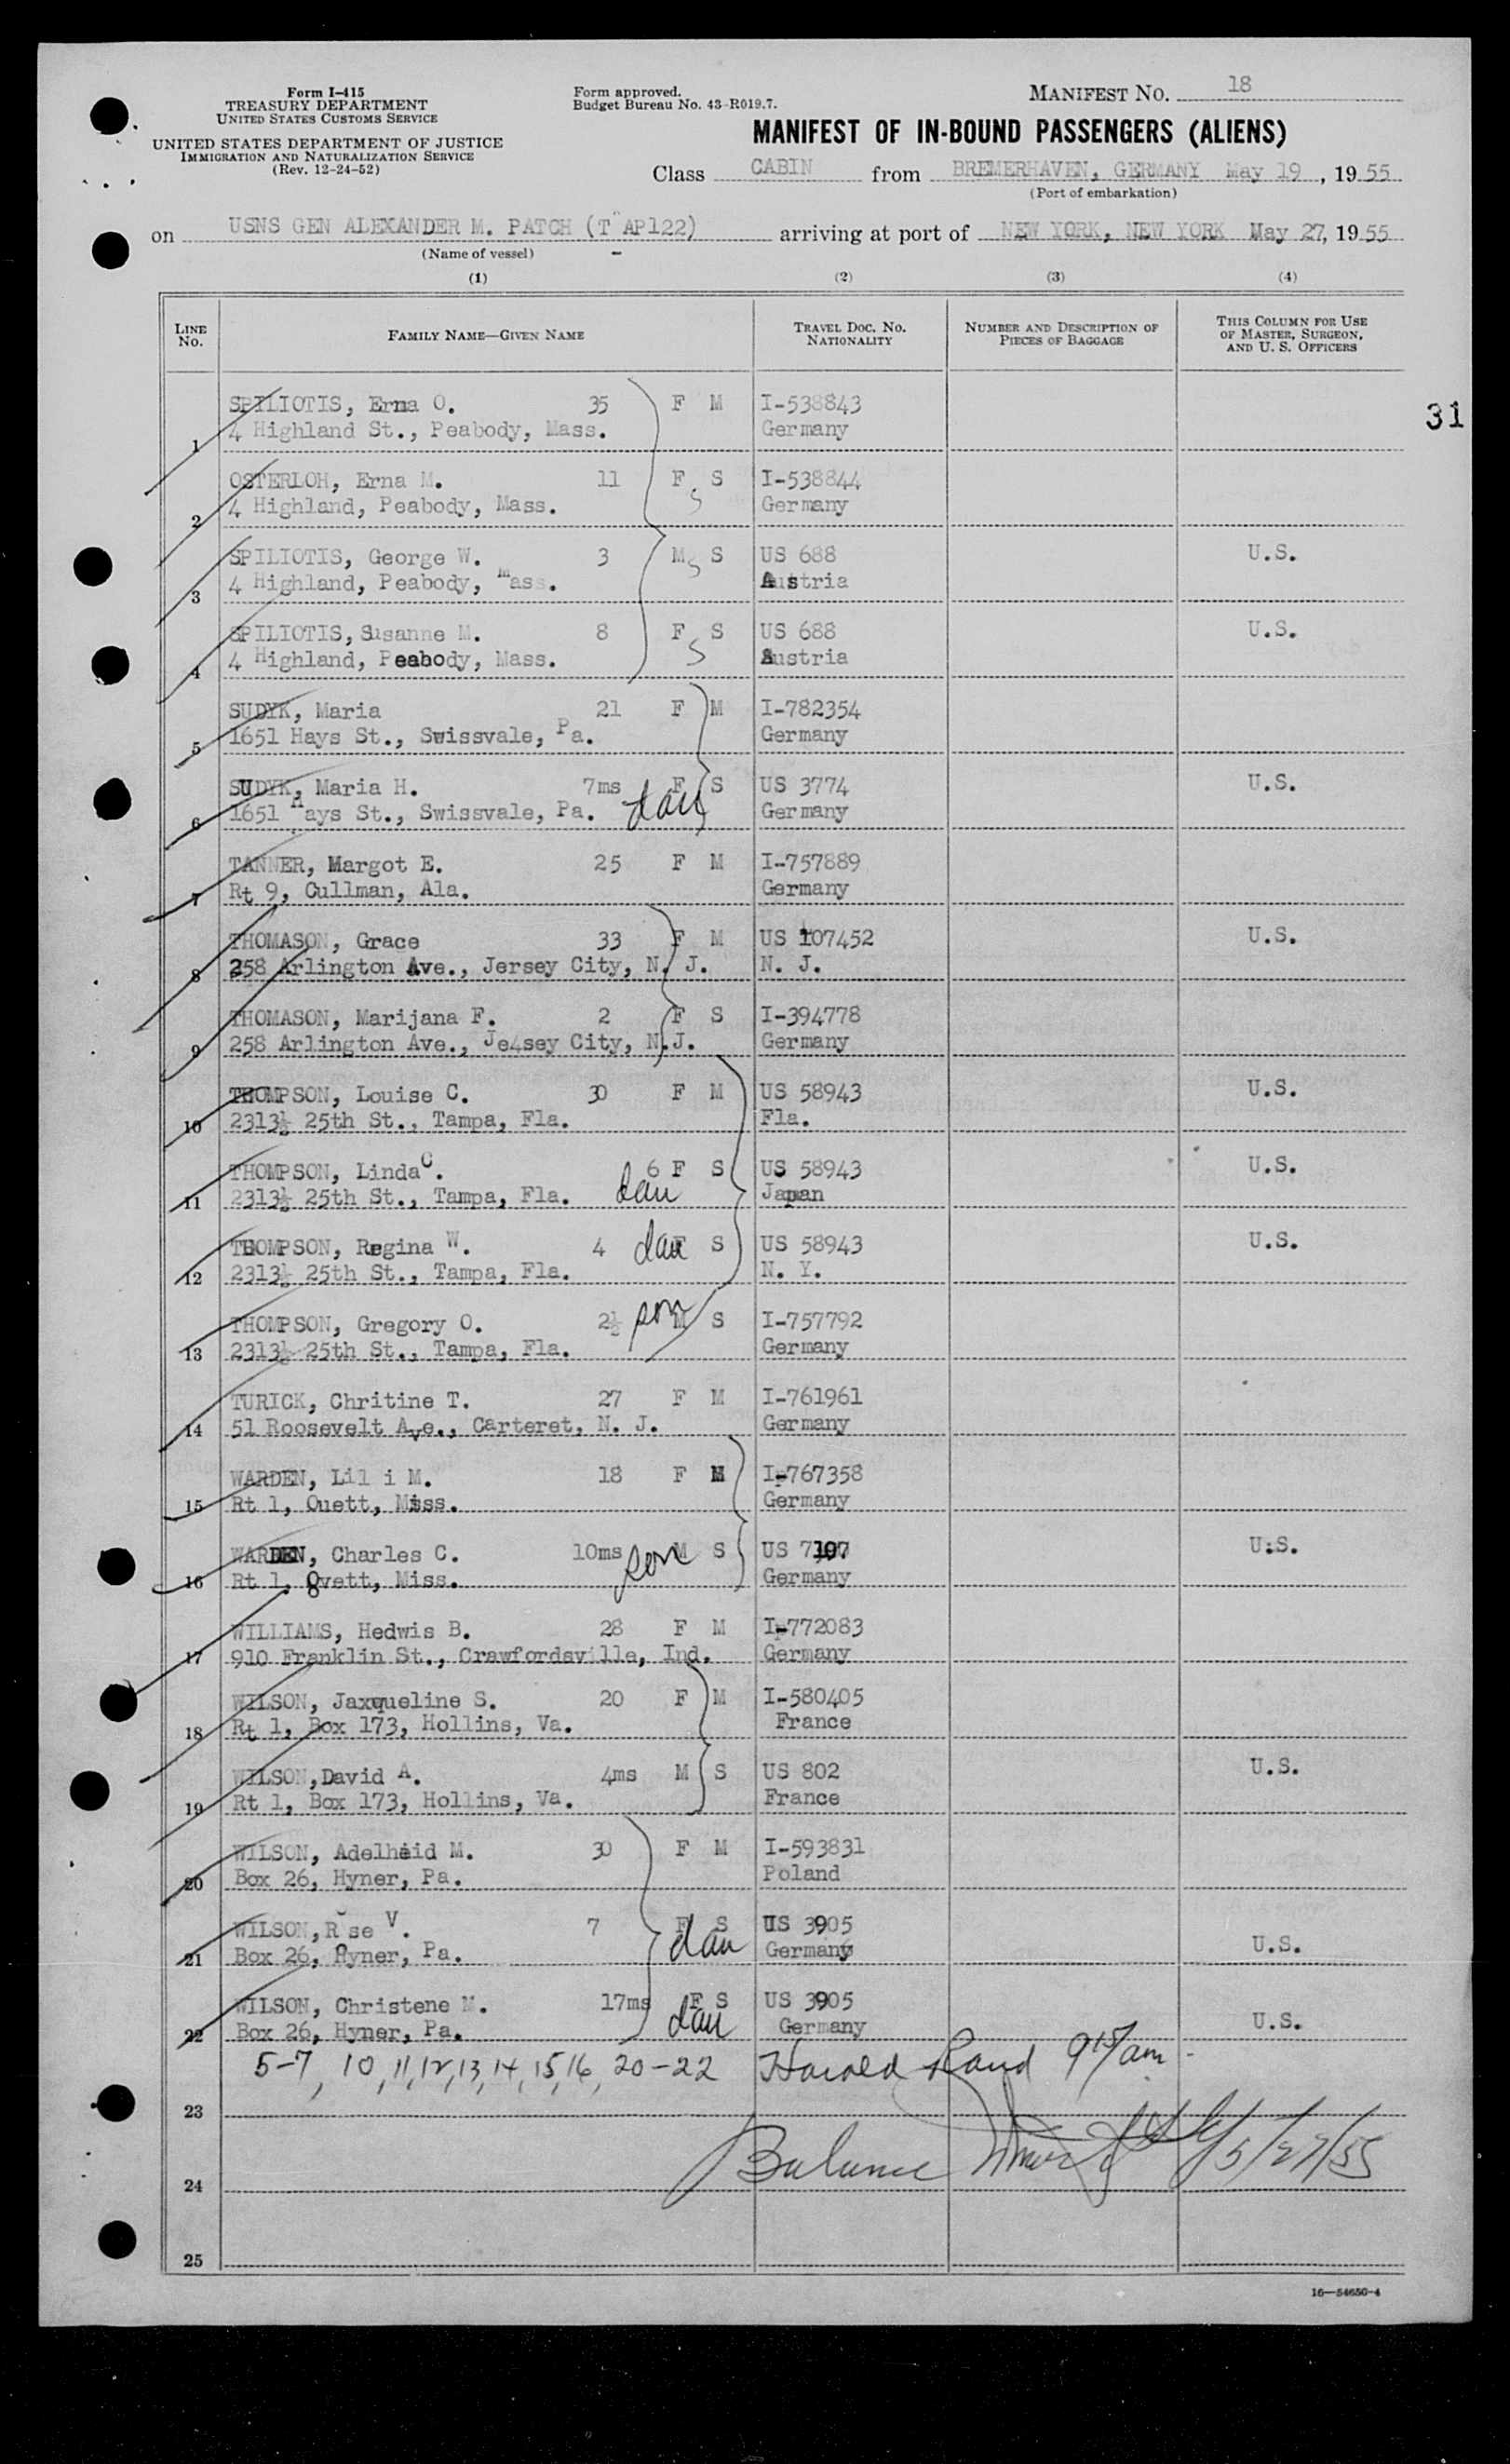 Form I-415
TREASURY DEPARTMENT
UNITED STATES CUSTOMS SERVICE
UNITED STATES DEPARTMENT OF JUSTICE
IMMIGRATION AND NATURALIZATION SERVICE
(Rev. 12-24-52)
Form approved.
Budget Bureau No. 43-R019.7.
MANIFEST NO. 18
MANIFEST OF IN-BOUND PASSENGERS (ALIENS)
Class CABIN from BREMERHAVEN, GERMANY May 19, 1955
(Port of embarkation)
on USNS GEN ALEXANDER M. PATCH (T-AP122) arriving at port of NEW YORK, NEW YORK May 27, 1955
(Name of vessel)
(1) (2) (3) (4)
LINE NO. FAMILY NAME—GIVEN NAME TRAVEL DOC. NO. NATIONALITY NUMBER AND DESCRIPTION OF PIECES OF BAGGAGE THIS COLUMN FOR USE OF MASTER, SURGEON, AND U. S. OFFICERS
31
SPILIOTIS, Erna O. 35 F M I-538843
1 4 Highland St., Peabody, Mass. Germany
OSTERLOH, Erna M. 11 F S I-538844
2 4 Highland, Peabody, Mass. S Germany
SPILIOTIS, George W. 3 M S US 688 U.S.
3 4 Highland, Peabody, Mass. S Austria
SPILIOTIS, Susanne M. 8 F S US 688 U.S.
4 4 Highland, Peabody, Mass. S Austria
SUDYK, Maria 21 F M I-782354
5 1651 Hays St., Swissvale, Pa. Germany
SUDYK, Maria H. 7ms F S US 3774 U.S.
6 1651 Hays St., Swissvale, Pa. dau Germany
TANNER, Margot E. 25 F M I-757889
7 Rt 9, Cullman, Ala. Germany
THOMASON, Grace 33 F M US 107452 U.S.
8 258 Arlington Ave., Jersey City, N. J. N. J.
THOMASON, Marijana F. 2 F S I-394778
9 258 Arlington Ave., Je4sey City, N.J. Germany
THOMPSON, Louise C. 30 F M US 58943 U.S.
10 2313½ 25th St., Tampa, Fla. Fla.
THOMPSON, Linda C. 6 F S US 58943 U.S.
11 2313½ 25th St., Tampa, Fla. dau Japan
THOMPSON, Regina W. 4 dau F S US 58943 U.S.
12 2313½ 25th St., Tampa, Fla. N. Y.
THOMPSON, Gregory O. 2½ son M S I-757792
13 2313½ 25th St., Tampa, Fla. Germany
TURICK, Chritine T. 27 F M I-761961
14 51 Roosevelt Ave., Carteret, N. J. Germany
WARDEN, Lil i M. 18 F M I-767358
15 Rt 1, Ouett, Miss. Germany
WARDEN, Charles C. 10ms son M S US 7107 U.S.
16 Rt 1, Ovett, Miss. Germany
WILLIAMS, Hedwis B. 28 F M I-772083
17 910 Franklin St., Crawfordsville, Ind. Germany
WILSON, Jaxqueline S. 20 F M I-580405
18 Rt 1, Box 173, Hollins, Va. France
WILSON, David A. 4ms M S US 802 U.S.
19 Rt 1, Box 173, Hollins, Va. France
WILSON, Adelheid M. 30 F M I-593831
20 Box 26, Hyner, Pa. Poland
WILSON, Rose V. 7 F S US 3905
21 Box 26, Hyner, Pa. dau Germany U.S.
WILSON, Christene M. 17ms F S US 3905
22 Box 26, Hyner, Pa. dau Germany U.S.
5-7, 10, 11, 12, 13, 14, 15, 16, 20-22 Harold Rand 9 15/am
23
Balance 5/27/55
24
25
16—54650-4